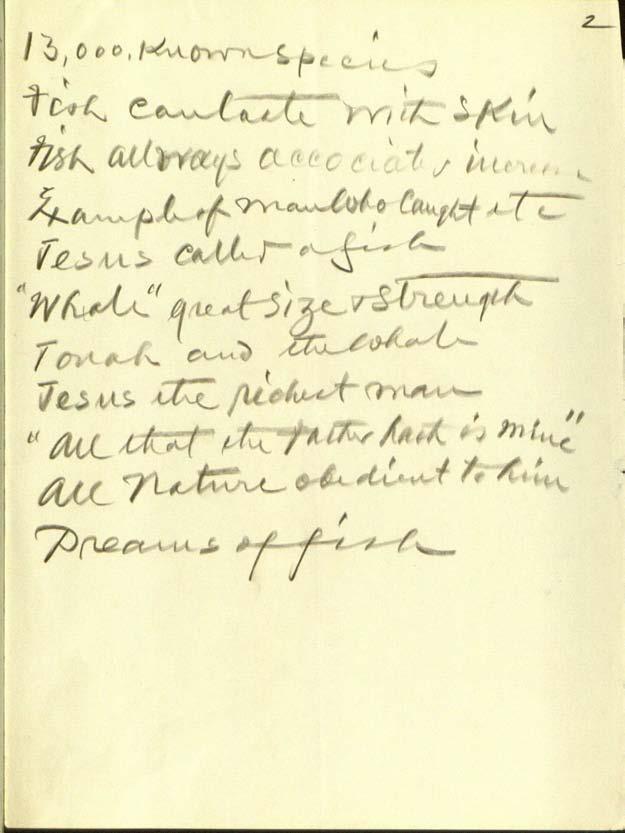 2
13,000. Known species
Fish can taste with skin
Fish allways accociated increase
Example of man who caught etc
Jesus called a fish
"Whale" great size & strength
Jonah and the whale
Jesus the richest man
"All that the Father hath is mine"
All Nature obedient to him
Dreams of fish